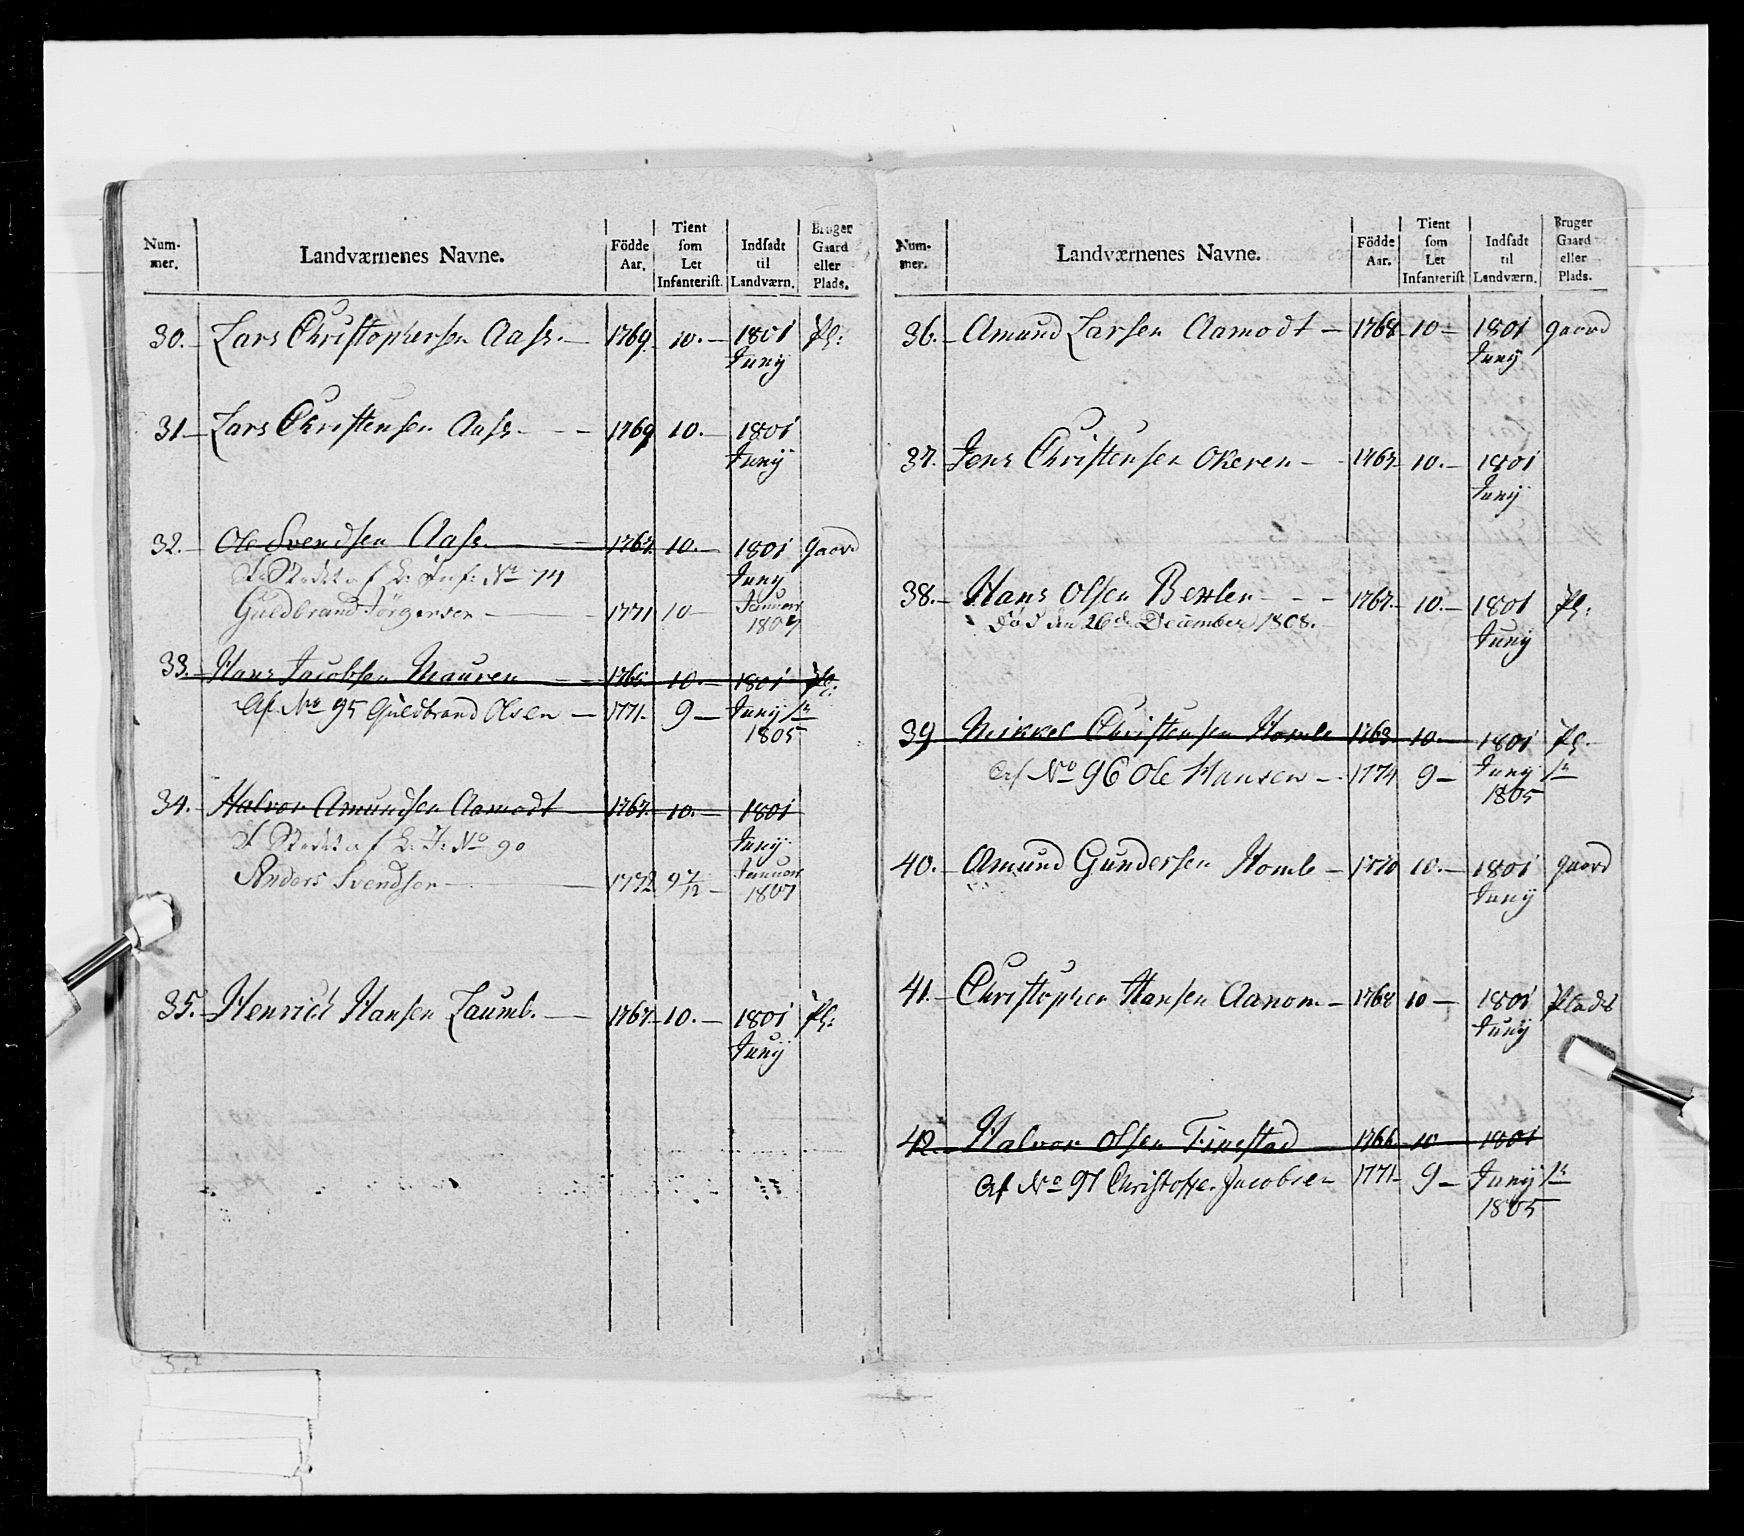 Num- mer. Landværnenes Navne. Födde Aar. Tient som Let Infanterist. Indsadt til Landværn. Bruger Gaard eller Plads.
30. Lars Christophersen Aass. 1769 10. 1801 Pl:
Junÿ
31 Lars Christensen Aass 1769 10. 1801
Junÿ
32. Ole Svendsen Aass 1767 10. 1801 gaard
I Stedet af L: Inf: No 74 Juny
Guldbrand Jörgensen 1771 10 Januar
1807
33. Hans Jacobsen Mauren 1765. 10. 1801 Pl:
Af No 95 Guldbrand Olsen 1771. 9 Junÿ
1805
34. Halvor Amundsen Aamodt 1767. 10. 1801
I Stedet af L: I: No 90 Junÿ
Anders Svendsen 1772 9 7/12 Januar
1807
35. Henrich Hansen Laumb. 1767 10. 1801 Pl:
Junÿ
Num- mer. Landværnenes Navne. Födde Aar. Tient som Let Infanterist Indsadt til Landværn. Bruger Gaard eller Plads.
36. Amund Larsen Aamodt 1768 10 1801 gaard
Junÿ
37. Jens Christensen Okeren 1767 10. 1801
Junÿ
38. Hans Olsen 1767. 10. 1801 Pl:
Död den 26de December 1808. Junÿ
39 Mikkel Christensen Homle 1763 10. 1801 Pl.
Af No 96 Ole Hansen 1774 9 Junÿ
1805
40. Amund Gundersen Homle 1770 10. 1801 gaard
Junÿ
41. Christopher Hansen Aanom 1768 10 1801 Plads
Junÿ
42. Halvor Olsen Finestad 1766 10 1801
Af No 97 Christoffer Jacobsen 1771 9 Junÿ
1805